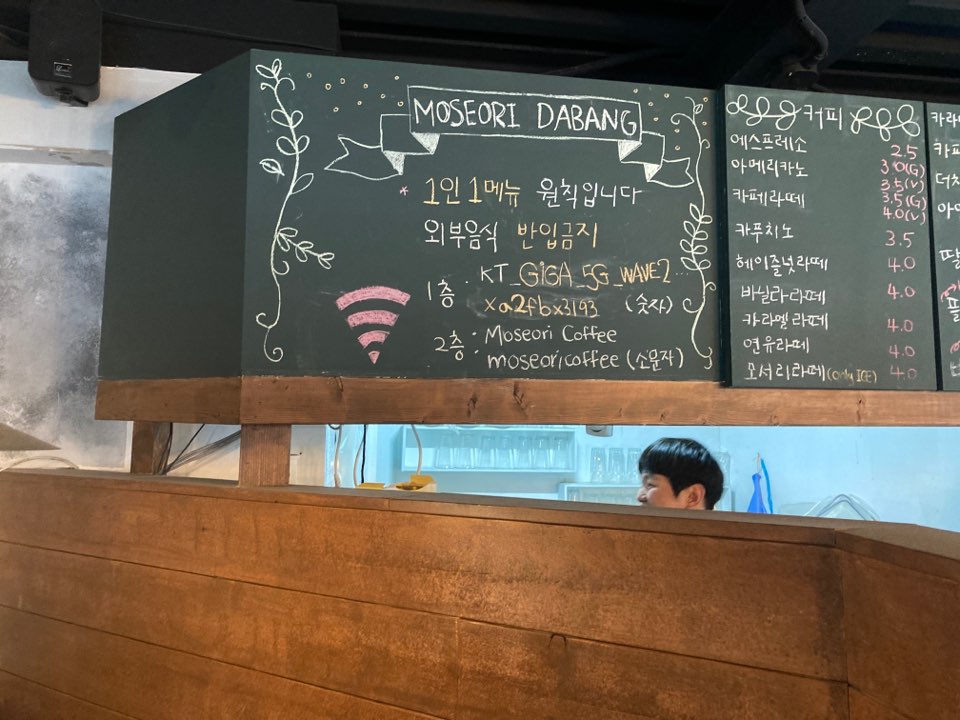 MOSEORI DABANG
* 1인 1메뉴 원칙입니다
외부음식 반입금지
1층 · KT_GIGA_5G_WAVE2...
xa2fbx3193 (숫자)
2층 : Moseori Coffee
moseoricoffee (소문자)
커피
에스프레소 2.5
아메리카노 3.0(G)
3.5(V)
카페라떼 3.5(G)
4.0(V)
카푸치노 3.5
헤이즐넛라떼 4.0
바닐라라떼 4.0
카라멜라떼 4.0
연유라떼 4.0
모서리라떼(only ICE) 4.0